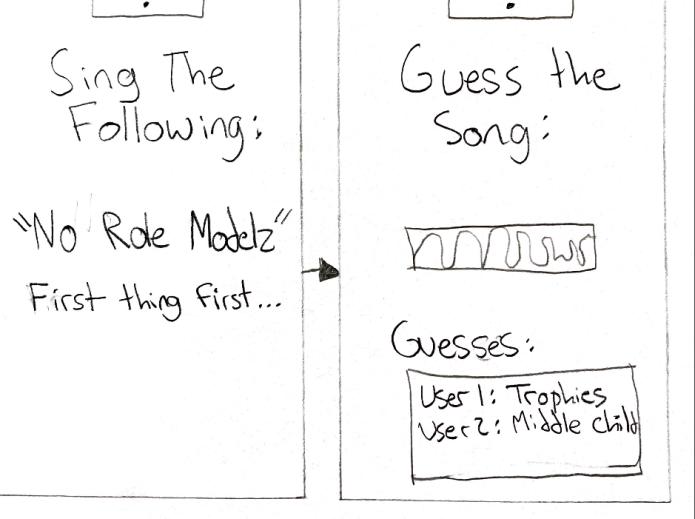 Sing The
Following:
"No Role Modelz"
First thing first...
Guess the
Song:
Guesses:
User 1: Trophies
User 2: Middle Child